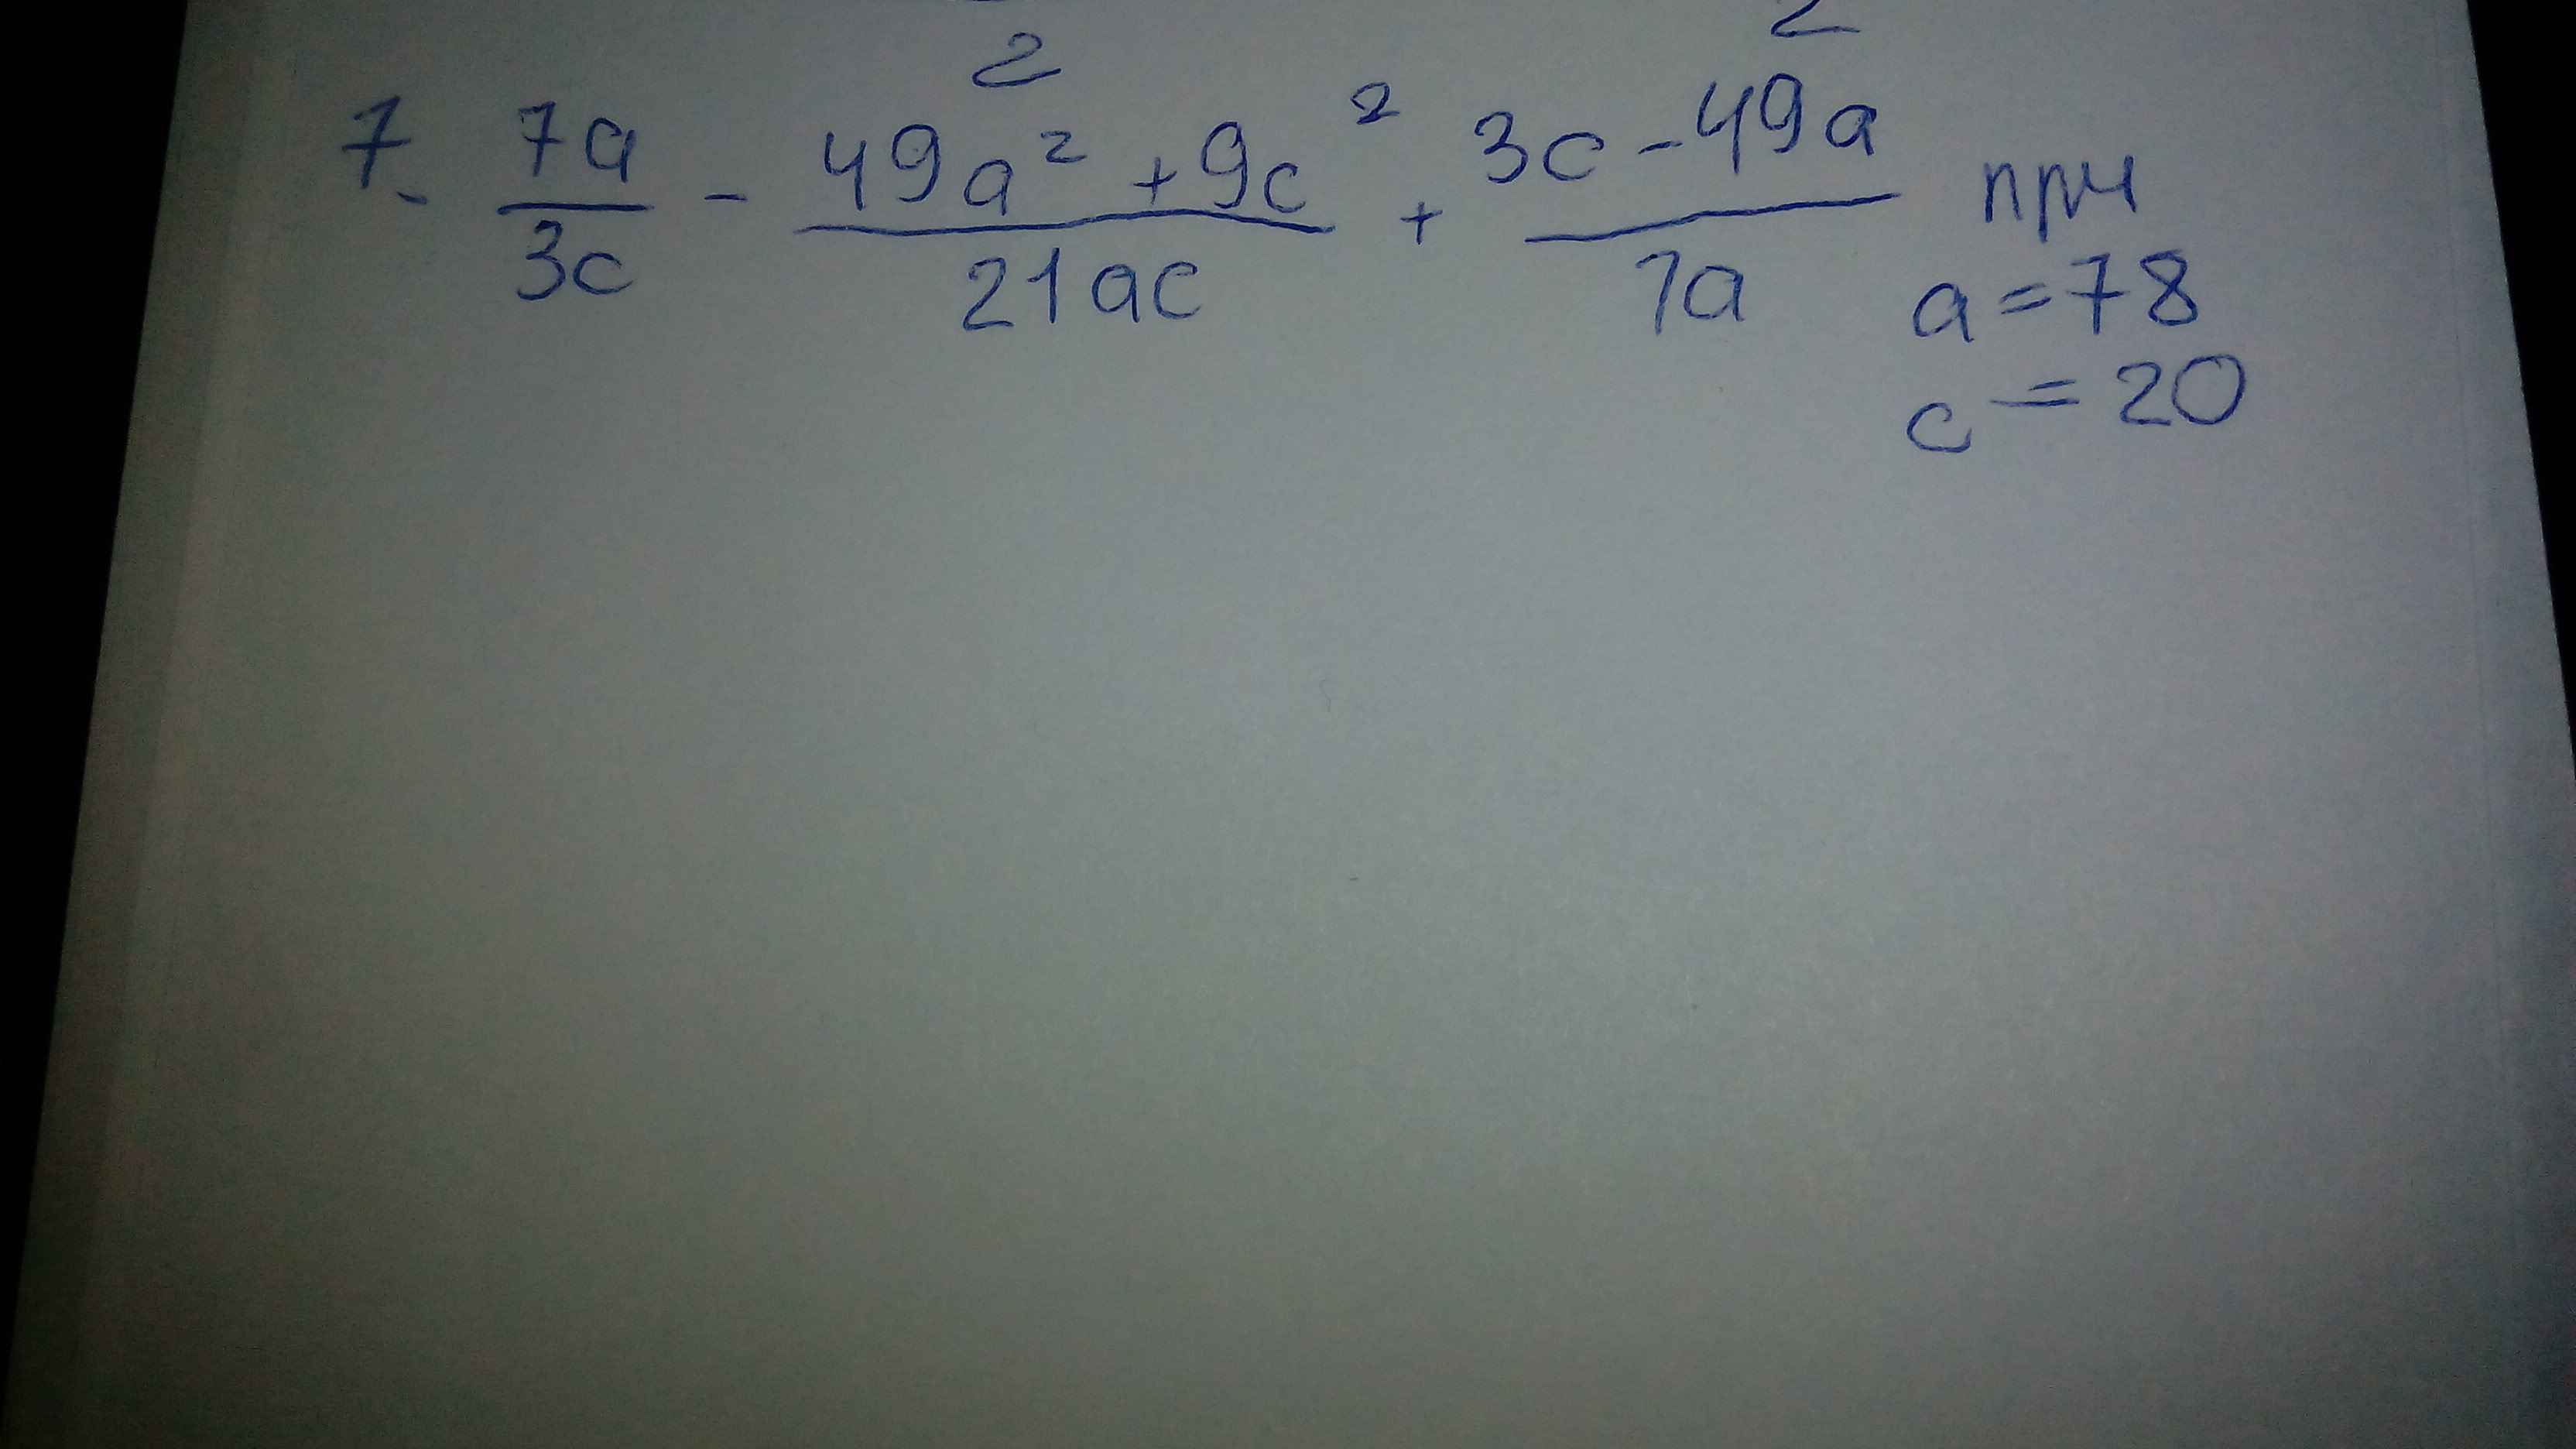 2 2
7. 7a/3c - (49a² + 9c²)/21ac + (3c - 49a)/7a при
a = 78
c = 20